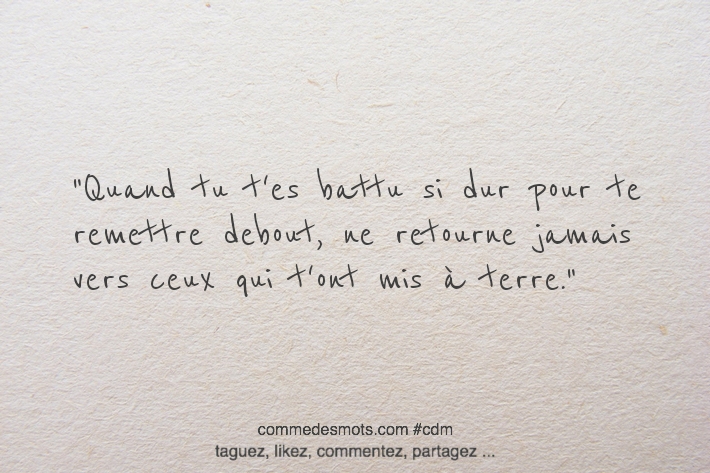 "Quand tu t'es battu si dur pour te
remettre debout, ne retourne jamais
vers ceux qui t'ont mis à terre."
commedesmots.com #cdm
taguez, likez, commentez, partagez ...